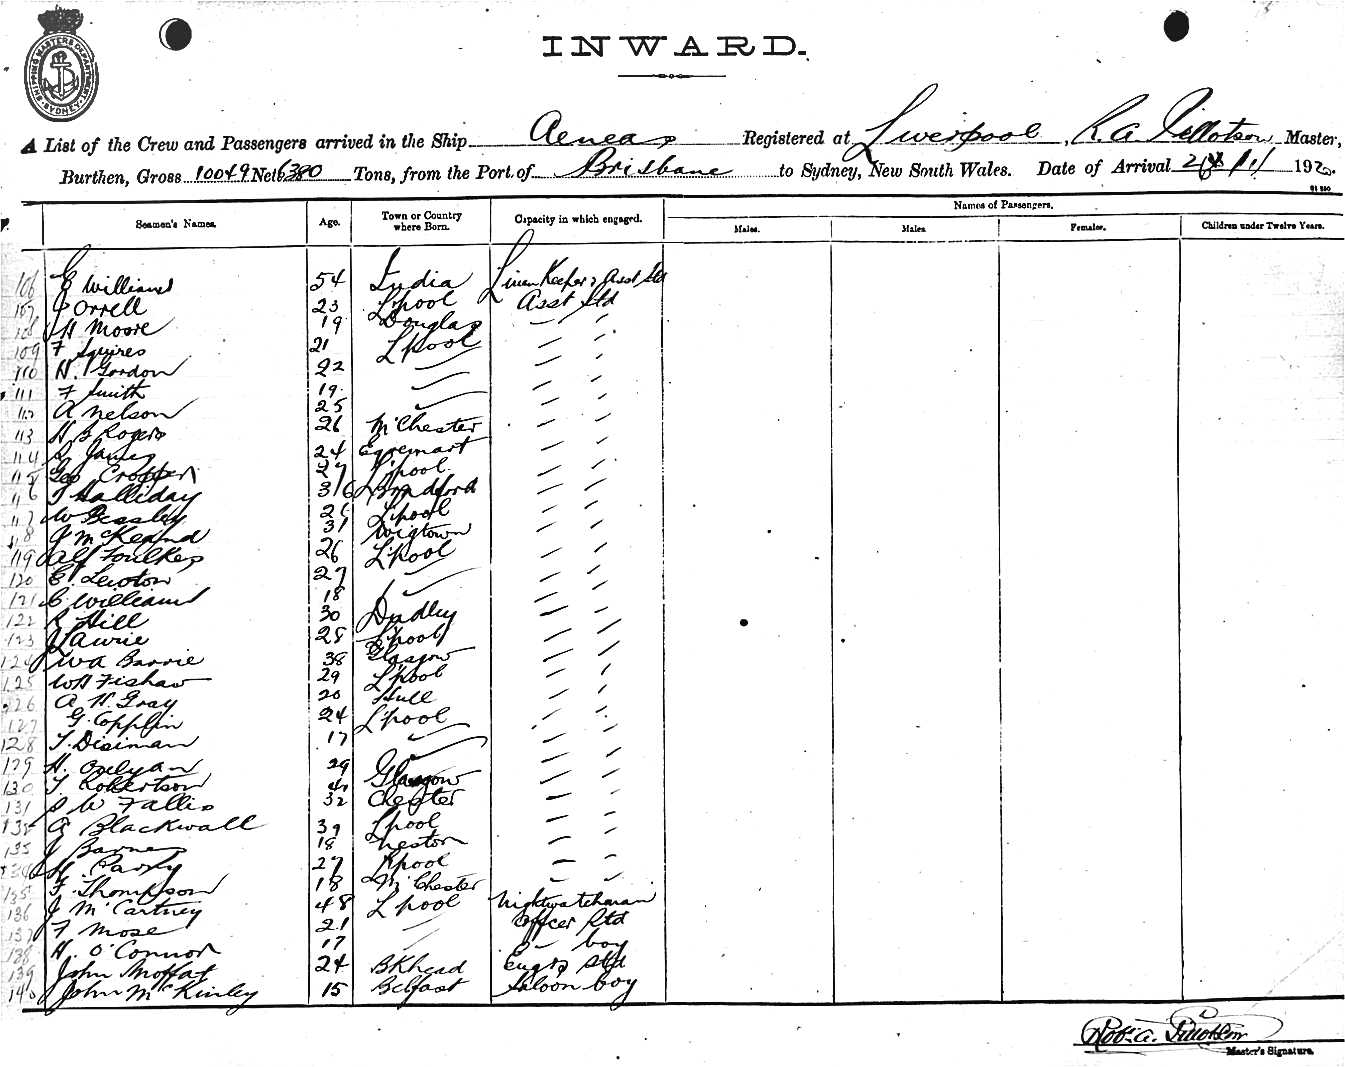 SHIPPING MASTERS DEPARTMENT SYDNEY
INWARD.
A List of the Crew and Passengers arrived in the Ship Aeneas Registered at Liverpool, R. A. Tillotson Master,
Burthen, Gross 10049 Net 6380 Tons, from the Port of Brisbane to Sydney, New South Wales. Date of Arrival 192
Seamen's Names. Age. Town or Country where Born. Capacity in which engaged. Names of Passengers.
Males. Males. Females. Children under Twelve Years.
106 E Williams 54 India Linen Keeper & Asst Std
107 J Orrell 23 L'pool Asst Std
108 H Moore 19 Douglas - "
109 F Squires 21 L'pool " "
110 H. Gordon 22 " " "
111 F Smith 19 " " "
112 A Nelson 25 " " "
113 H S Rogers 26 M'Chester " "
114 S James 24 Egremont " "
115 Geo Cropper 27 L'pool " "
116 T Halliday 36 Bradford " "
117 W Bessley 26 L'pool " "
118 J McKeand 31 Wigtown " "
119 Alf Foulkes 26 L'pool " "
120 E. Lewton 27 " " "
121 C Williams 18 " " "
122 R Hill 30 Dudley - "
123 J Lawrie 28 L'pool " "
124 W A Barrie 38 Glasgow " "
125 W H Fishaw 29 L'pool " "
126 A. H. Gray 20 Hull " "
127 G. Copplin 24 L'pool " "
128 T. Disiman 17 " " "
129 H. 29 - "
130 T. Robertson Glasgow - "
131 S W Fallis 32 Chester - "
132 A Blackwall 39 L'pool - "
133 J Barnes 18 Neston - "
134 H. Parry 27 L'pool - -
135 F. Thompson 18 M'Chester - -
136 J McCartney 48 L'pool Nightwatchman
137 F Mose 21 " Officer Std
138 H. O'Connor 17 " " boy
139 John Moffat 24 BKhead Engrs Std
140 John McKinley 15 Belfast Saloon boy
Robt. A. Tillotson
Master's Signature.